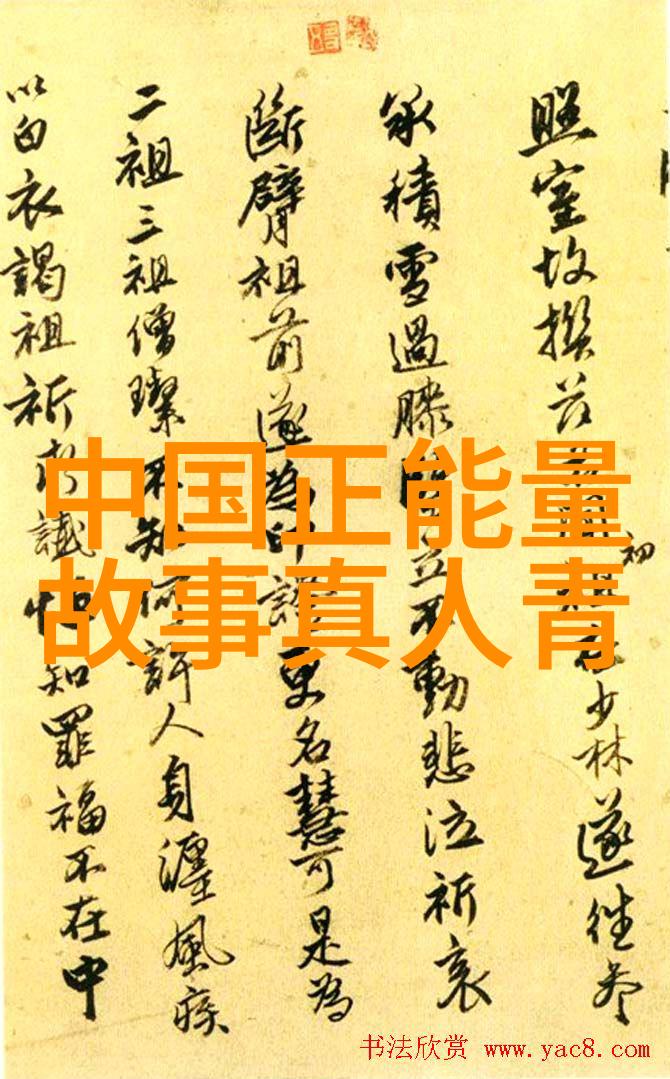 照室故撰
初
少林遂往参
承积雪過膝立不動悲泣祈哀
断臂祖前遂為印證更名慧可是為
二祖三祖僧璨不知何許人身纏風疾
以白衣謁祖祈求懺悔知罪福不在中
中国正能量
故事真人青
书法欣赏 www.yac8.com